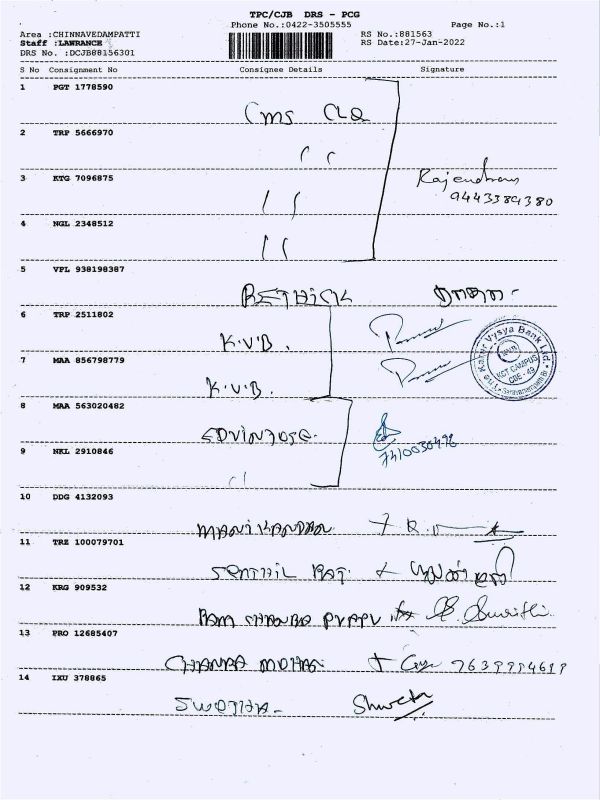 TPC/CJB DRS - PCG
Phone No.:0422-3505555
Page No.:1
Area :CHINNAVEDAMPATTI
RS No.:881563
Staff :LAWRANCE
RS Date:27-Jan-2022
DRS No. :DCJB88156301
S No Consignment No Consignee Details Signature
1 PGT 1778590
Cms CLQ
2 TRP 5666970
3 KTG 7096875
Rajendran
9443389380
4 NGL 2348512
5 VPL 938198387
RETHICK
6 TRP 2511802
K.V.B.
7 MAA 856798779
K.V.B.
The Karur Vysya Bank Ltd.
KCT CAMPUS
CBE - 49
8 MAA 563020482
EDVINJOSE.
7410030496
9 NKL 2910846
10 DDG 4132093
MANIKANDAN
11 TRZ 100079701
SENTHIL
12 KRG 909532
RAM CHANDRA
13 PRO 12685407
CHANDRA MOHAN 7639994619
14 IXU 378865
SWETHA Shweta